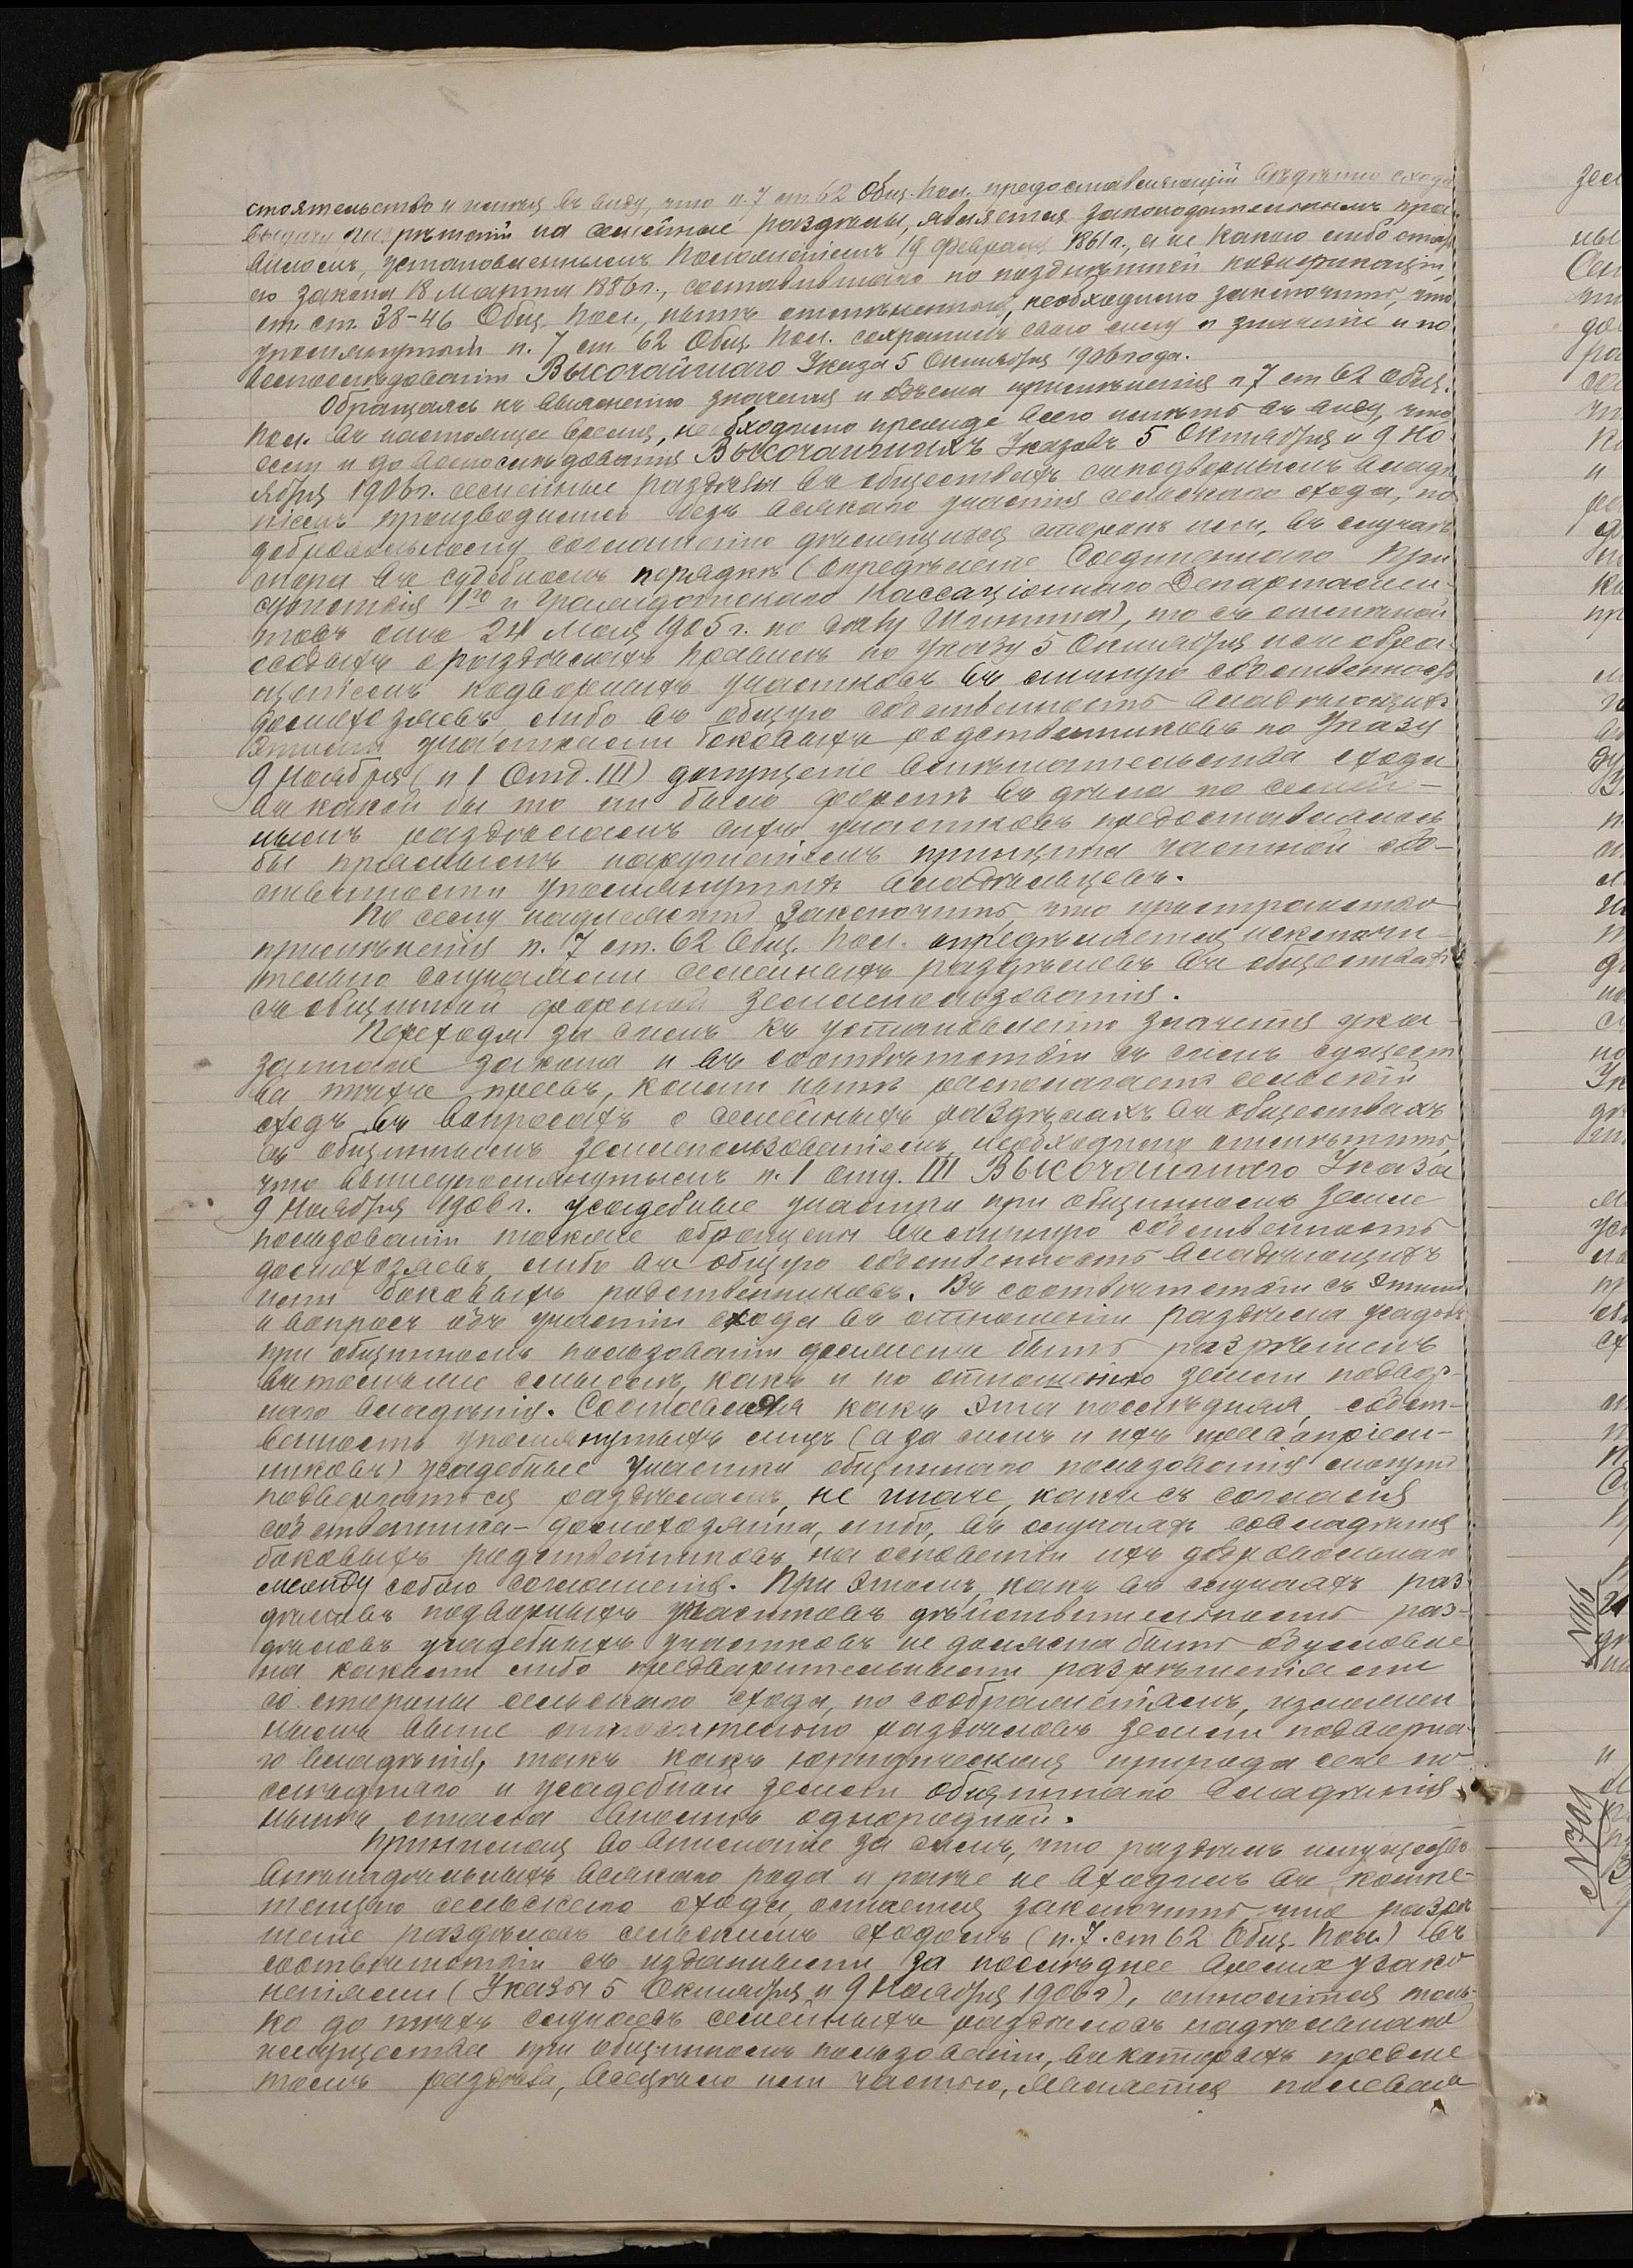 стоятельство и имѣя въ виду, что п. 7 ст 62 Общ. Пол. предоставляющій вѣдѣнію схода
выдачу разрѣшеній на семейные раздѣлы, является законодательнымъ пра-
виломъ, установленнымъ Положеніемъ 19 февраля 1861 г., а не какою либо стать
ею закона 18 Марта 1886 г., составившаго по позднѣйшей кодификаціи
ст. ст. 38-46 Общ. Пол., нынѣ отмѣненной, необходимо заключить, что
упомянутый п. 7 ст 62 Общ. Пол. сохранилъ свою силу и значеніе и по
воспослѣдованіи Высочайшаго Указа 5 Октября 1906 года.
Обращаясь къ выясненію значенія и объема примѣненія п 7 ст 62 Общ.
Пол. въ настоящее время, необходимо прежде всего имѣть въ виду, что
если и до воспослѣдованія Высочайшихъ Указовъ 5 Октября и 9 Но
ября 1906 г. семейные раздѣлы въ обществахъ съ подворнымъ владѣ
ніемъ производились безъ всякаго участія сельскаго схода, по
добровольному соглашенію дѣлящихся сторонъ или, въ случаѣ
спора въ судебномъ порядкѣ (опредѣленіе Соединеннаго При
сутствія 1го и Гражданскаго Кассаціоннаго Департамен-
товъ отъ 24 Мая 1905 г. по дѣлу), то съ отмѣной
особыхъ о раздѣлахъ правилъ по Указу 5 Октября и съ обра-
щеніемъ подворныхъ участковъ въ личную собственность
домохозяевъ, либо въ общую собственность владѣющихъ
этими участками боковыхъ родственниковъ по Указу
9 Ноября (п 1 Отд. III) допущеніе вмѣшательства схода
въ какой бы то ни было формѣ въ дѣла по семей-
нымъ раздѣламъ сихъ участковъ представлялось
бы прямымъ нарушеніемъ принципа частной соб-
ственности упомянутыхъ владѣльцевъ.
По сему надлежитъ заключить, что пространство
примѣненія п. 7 ст. 62 Общ. Пол. опредѣляется исключи-
тельно случаями семейныхъ раздѣловъ въ обществахъ
съ общинной формой землепользованія.
Переходя за симъ къ установленію значенія ука-
заннаго закона и въ соотвѣтствіи съ симъ сущест
ва тѣхъ правъ, коими нынѣ располагаетъ сельскій
сходъ въ вопросахъ о семейныхъ раздѣлахъ въ обществахъ
съ общиннымъ землепользованіемъ, необходимо отмѣтить,
что вышеупомянутымъ п. 1 отд. III Высочайшаго Указа
9 Ноября 1906 г. усадебные участки при общинномъ земле
пользованіи также обращены въ личную собственность
домохозяевъ, либо въ общую собственность владѣющихъ
ими боковыхъ родственниковъ. Въ соотвѣтствіи съ этимъ
и вопросъ объ участіи схода въ отношеніи раздѣла усадьбъ
при общинномъ пользованіи долженъ быть разрѣшенъ
въ томъ же смыслѣ, какъ и по отношенію земли подвор-
наго владѣнія. Составляя какъ эта послѣдняя, собст-
венность упомянутыхъ лицъ (а за симъ и ихъ правопріем-
никовъ) усадебные участки общиннаго пользованія могутъ
подвергаться раздѣламъ, не иначе, какъ съ согласія
собственника-домохозяина, либо, въ случаяхъ совладѣнія
боковыхъ родственниковъ, на основаніи ихъ добровольнаго
между собою соглашенія. При этомъ, какъ въ случаяхъ раз
дѣловъ подворныхъ участковъ дѣйствительность раз-
дѣловъ усадебныхъ участковъ не должна быть обусловле
на какими либо предварительными разрѣшеніями
со стороны сельскаго схода, по соображеніямъ, изложен
нымъ выше относительно раздѣловъ земли подворна
го владѣнія, такъ какъ юридическая природа сего по
слѣдняго и усадебной земли общиннаго владѣнія
нынѣ стала вполнѣ однородной.
Принимая во вниманіе за симъ, что раздѣлъ имущества
внѣнадѣльныхъ всякаго рода и ранѣе не входилъ въ компе-
тенцію сельскаго схода, остается заключить, что разрѣ
шеніе раздѣловъ сельскимъ сходомъ (п. 7. ст 62 Общ. Пол.) въ
соотвѣтствіи съ изданными за послѣднее время узако
неніями (Указы 5 Октября и 9 Ноября 1906 г), относится толь-
ко до тѣхъ случаевъ семейныхъ раздѣловъ надѣльнаго
имущества при общинномъ пользованіи, въ которыхъ предме
томъ раздѣла, всецѣло или частью, является полевая